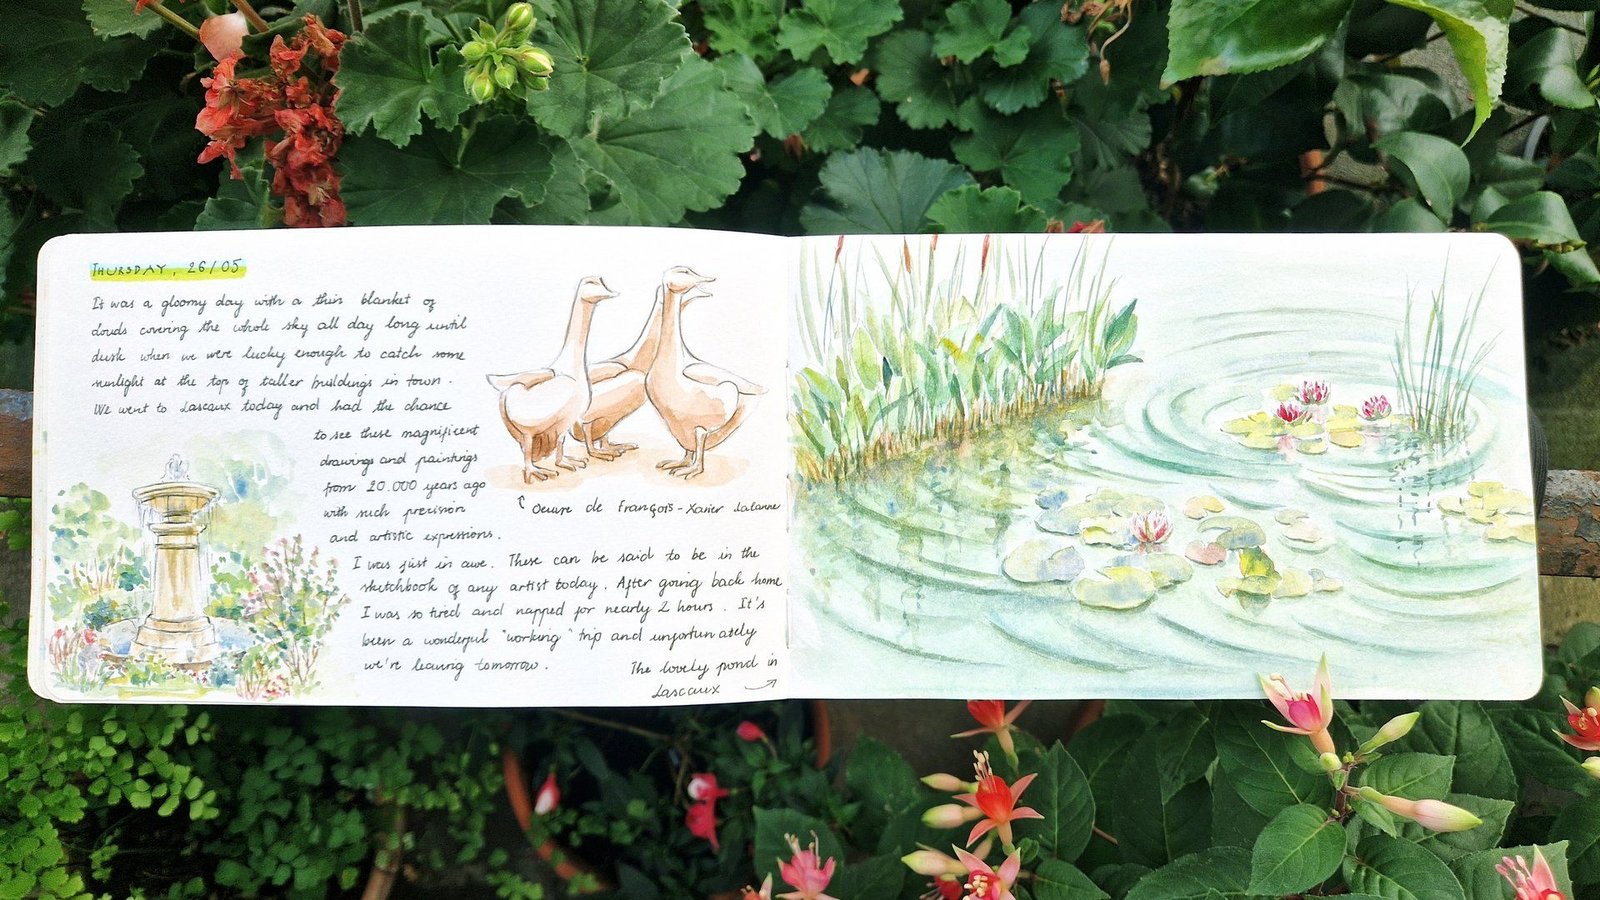 THURSDAY, 26/05
It was a gloomy day with a thin blanket of
clouds covering the whole sky all day long until
dusk when we were lucky enough to catch some
sunlight at the top of taller buildings in town.
We went to Lascaux today and had the chance
to see these magnificent
drawings and paintings
from 20.000 years ago
with such precision
and artistic expressions.
I was just in awe. These can be said to be in the
sketchbook of any artist today. After going back home
I was so tired and napped for nearly 2 hours. It's
been a wonderful "working" trip and unfortunately
we're leaving tomorrow.
Oeuvre de François-Xavier Lalanne
The lovely pond in
Lascaux